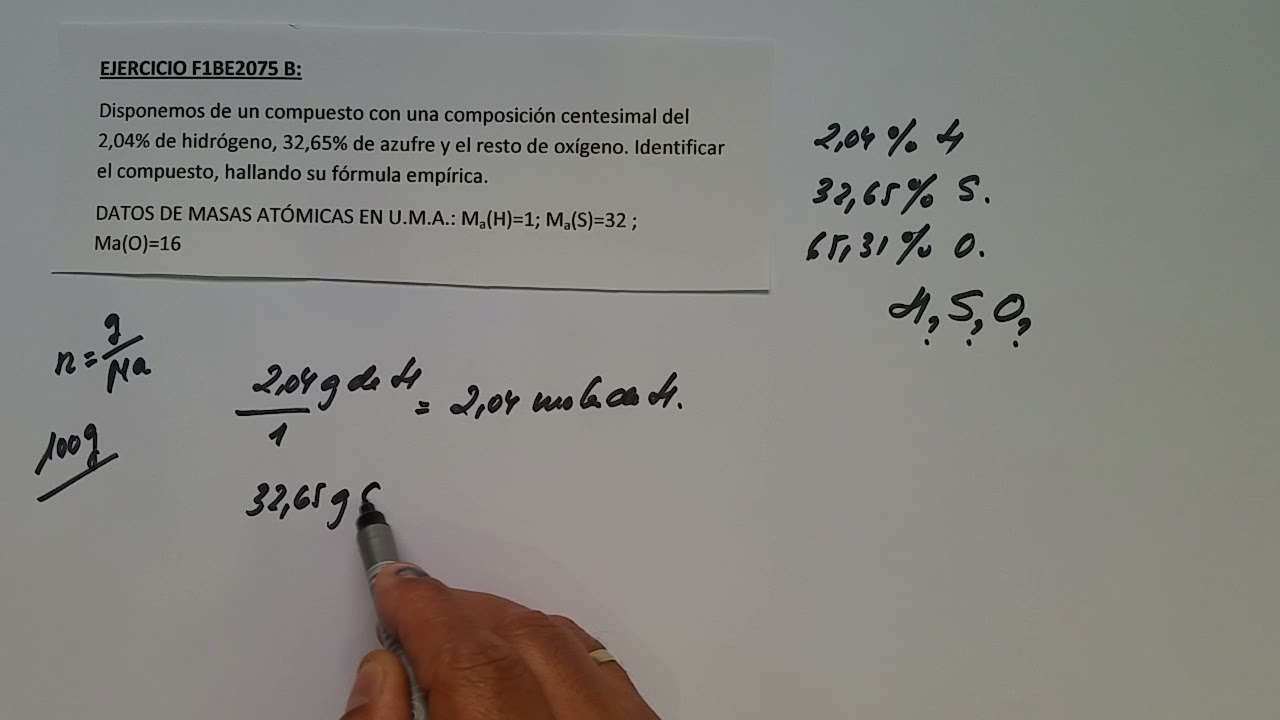 EJERCICIO F1BE2075 B:
Disponemos de un compuesto con una composición centesimal del
2,04% de hidrógeno, 32,65% de azufre y el resto de oxígeno. Identificar
el compuesto, hallando su fórmula empírica.
DATOS DE MASAS ATÓMICAS EN U.M.A.: Ma(H)=1; Ma(S)=32 ;
Ma(O)=16
2,04 % H
32,65% S.
65,31% O.
H? S? O?
n = g / Ma
100g
2,04 g de H / 1 = 2,04 moles de H.
32,65 g S